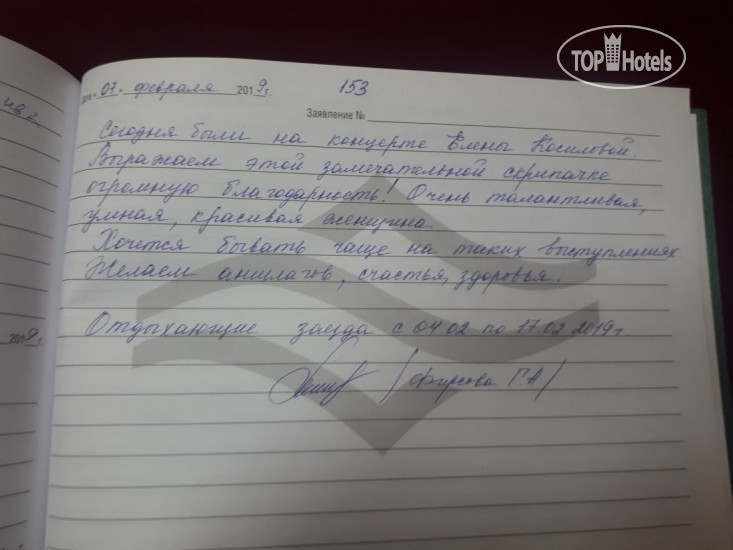 TOP Hotels
"07" февраля 2019 г. 153
Заявление №
Сегодня были на концерте Елены Косиловой.
Выражаем этой замечательной скрипачке
огромную благодарность! Очень талантливая,
умная, красивая женщина.
Хочется бывать чаще на таких выступлениях
Желаем аншлагов, счастья, здоровья.
Отдыхающие заезда с 04.02. по 17.02 2019 г
/Фирсова Г.А/
2019 г.